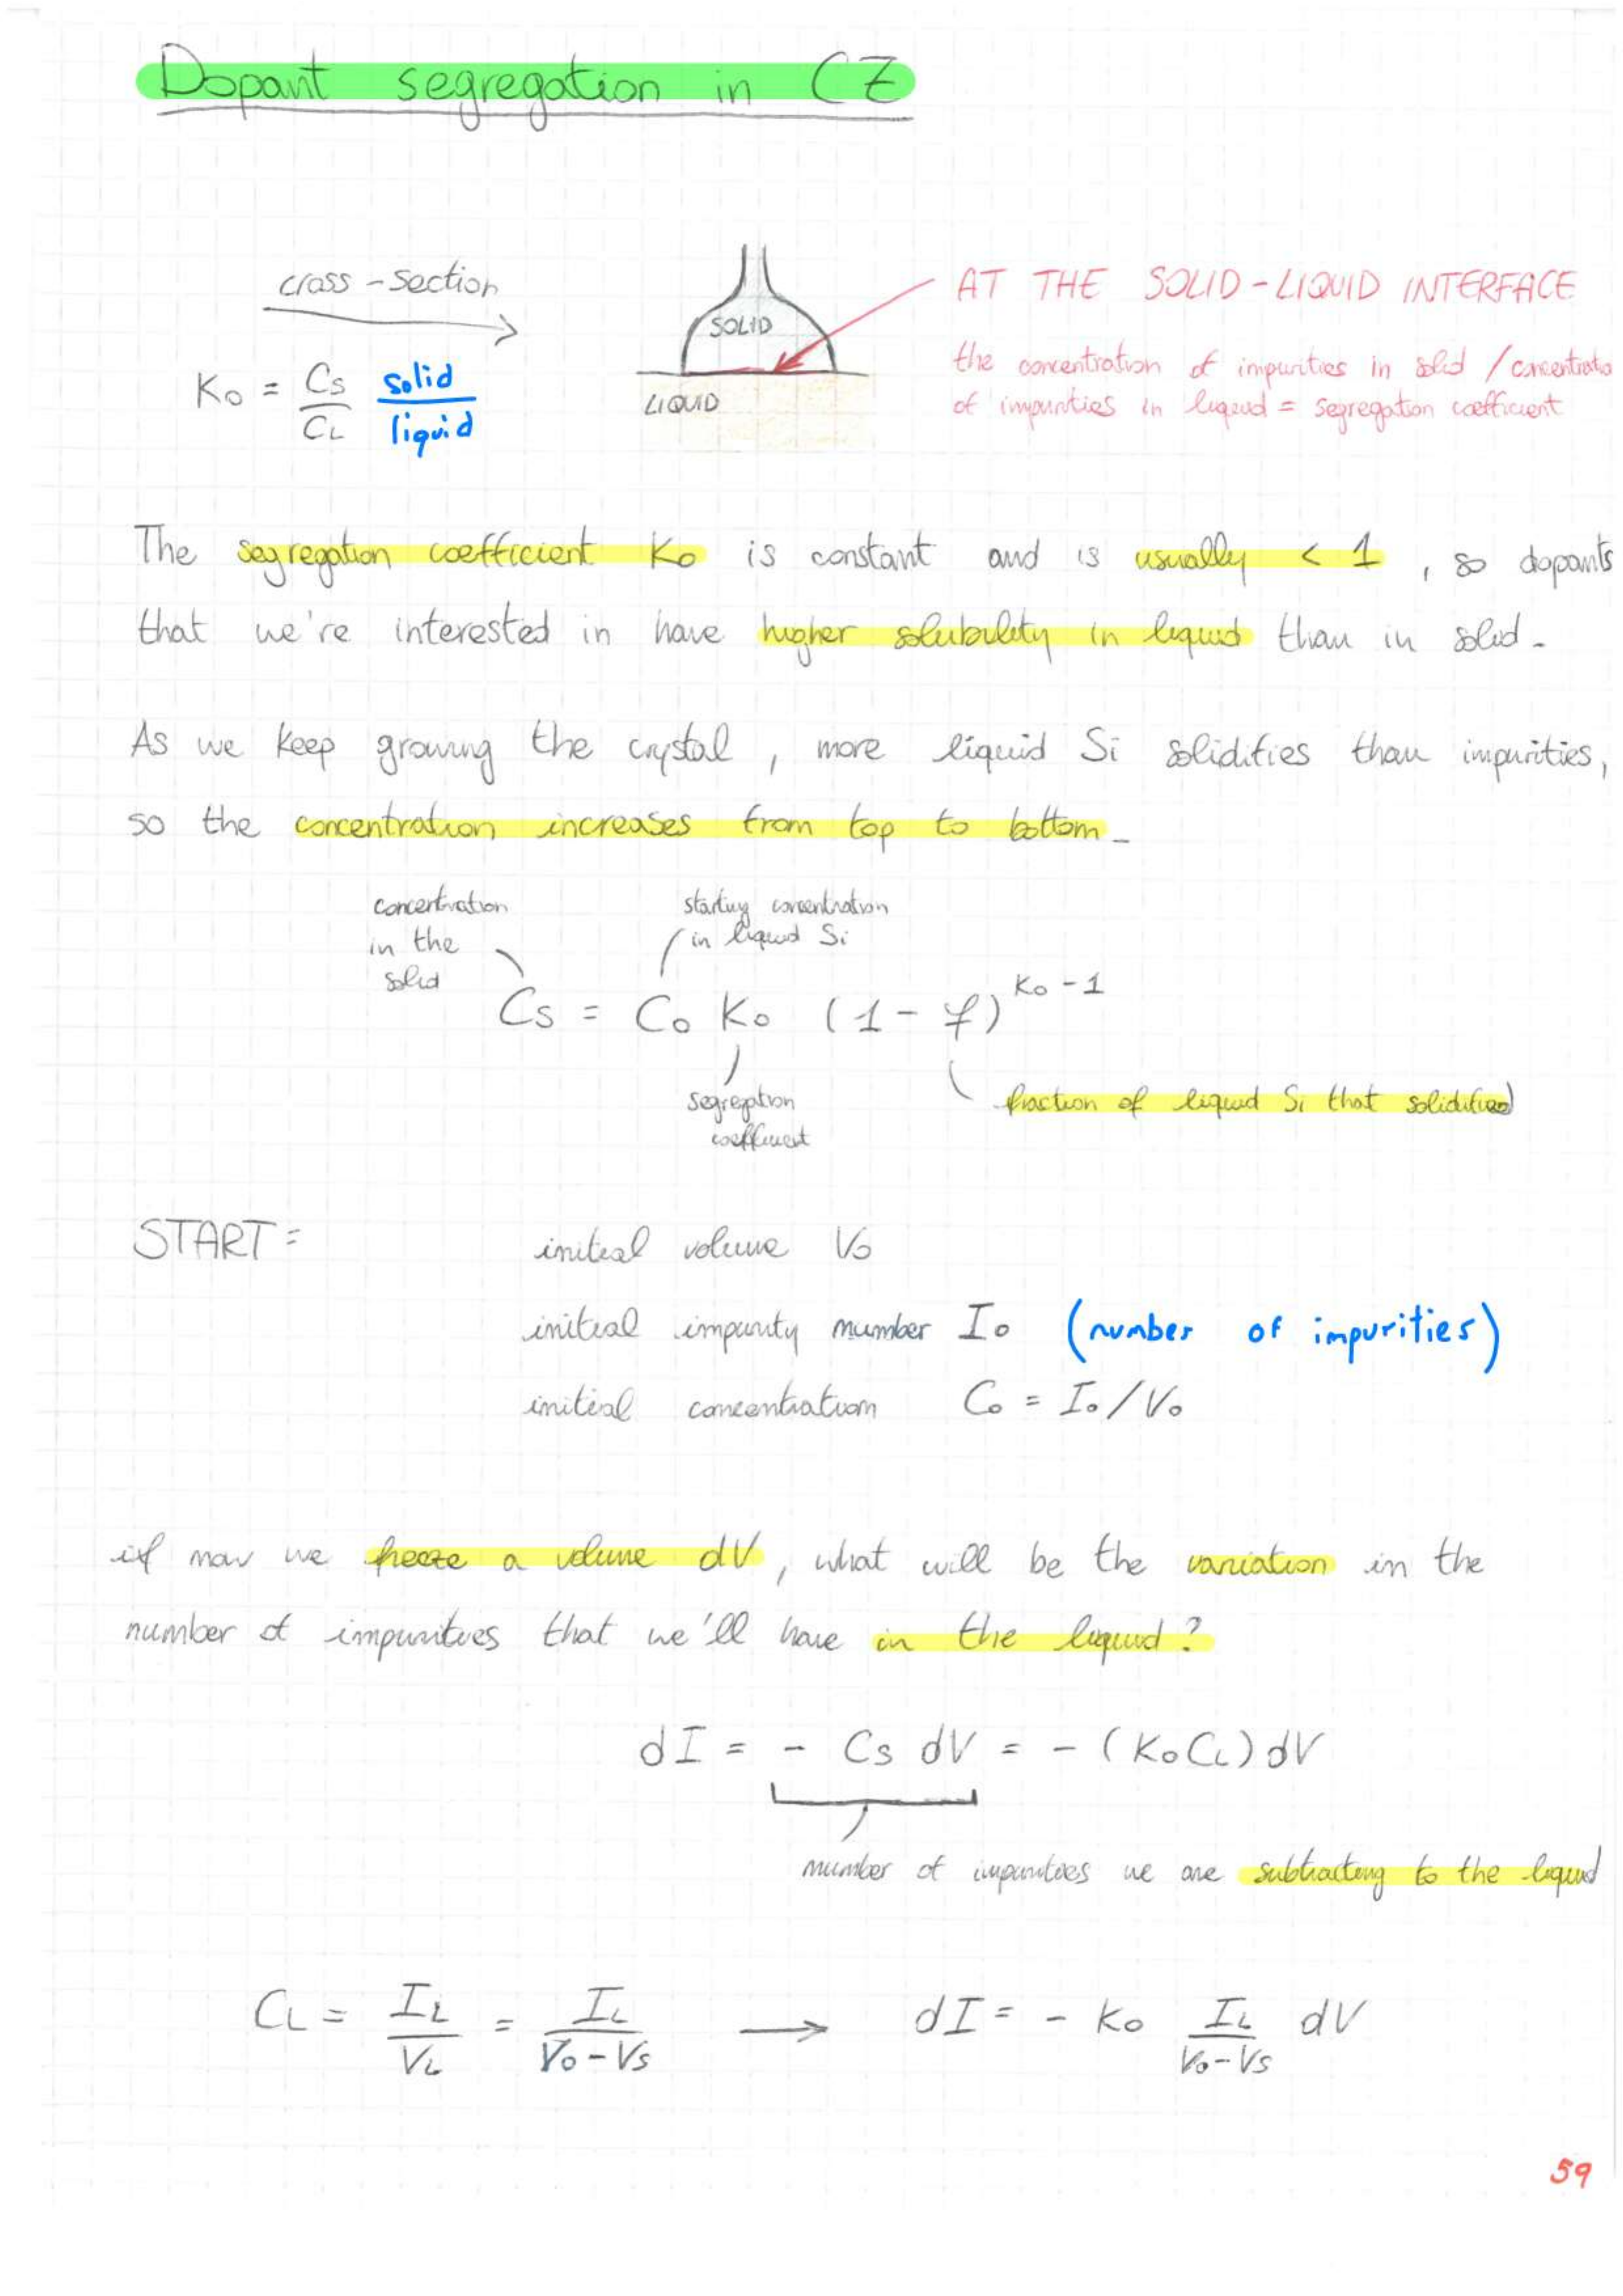 Dopant segregation in CZ
cross-section
K₀ = Cs/CL solid/liquid
SOLID
LIQUID
AT THE SOLID-LIQUID INTERFACE
the concentration of impurities in solid / concentratio
of impurities in liquid = segregation coefficient
The segregation coefficient K₀ is constant and is usually < 1, so dopants
that we're interested in have higher solubility in liquid than in solid.
As we keep growing the crystal, more liquid Si solidifies than impurities,
so the concentration increases from top to bottom.
concentration
in the
solid
starting concentration
in liquid Si
Cs = C₀ K₀ (1 - f)^(K₀ - 1)
segregation
coefficient
fraction of liquid Si that solidified
START:
initial volume V₀
initial impurity number I₀ (number of impurities)
initial concentration C₀ = I₀/V₀
if now we freeze a volume dV, what will be the variation in the
number of impurities that we'll have in the liquid?
dI = - Cs dV = - (K₀CL) dV
number of impurities we are subtracting to the liquid
CL = IL/VL = IL/(V₀ - Vs) → dI = - K₀ IL/(V₀ - Vs) dV
59